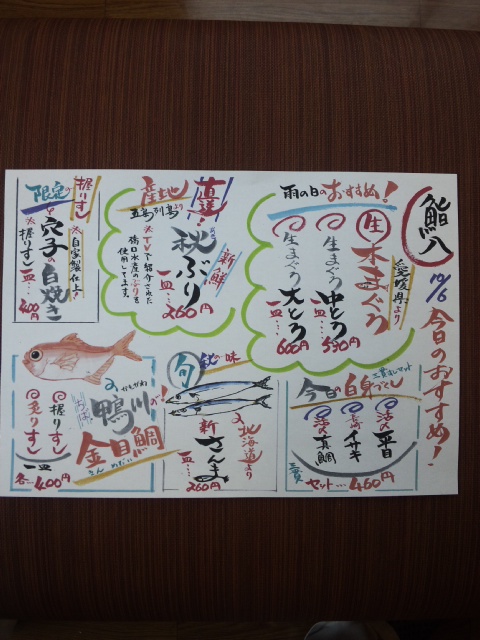 鮨八
10/6 今日のおすすめ!
雨の日のおすすめ!
愛媛県より
生 本まぐろ
生まぐろ 中とろ
一皿…530円
生まぐろ 大とろ
一皿…600円
産地直送!
五島列島より
新鮮
秋ぶり
一皿…260円
※TVで紹介された
橋口水産のぶりを
使用してます。
限定の握りずし
※自家製仕上!
穴子の白焼き
※握りずし一皿…400円
今日の白身づくし
三貫もりセット
活〆平目
イサキ
活〆真鯛
三貫セット…460円
旬 秋の味
北海道より
新さんま
一皿…260円
かもがわ
鴨川
金目鯛
きんめだい
握りずし
炙りずし
一皿
各…400円